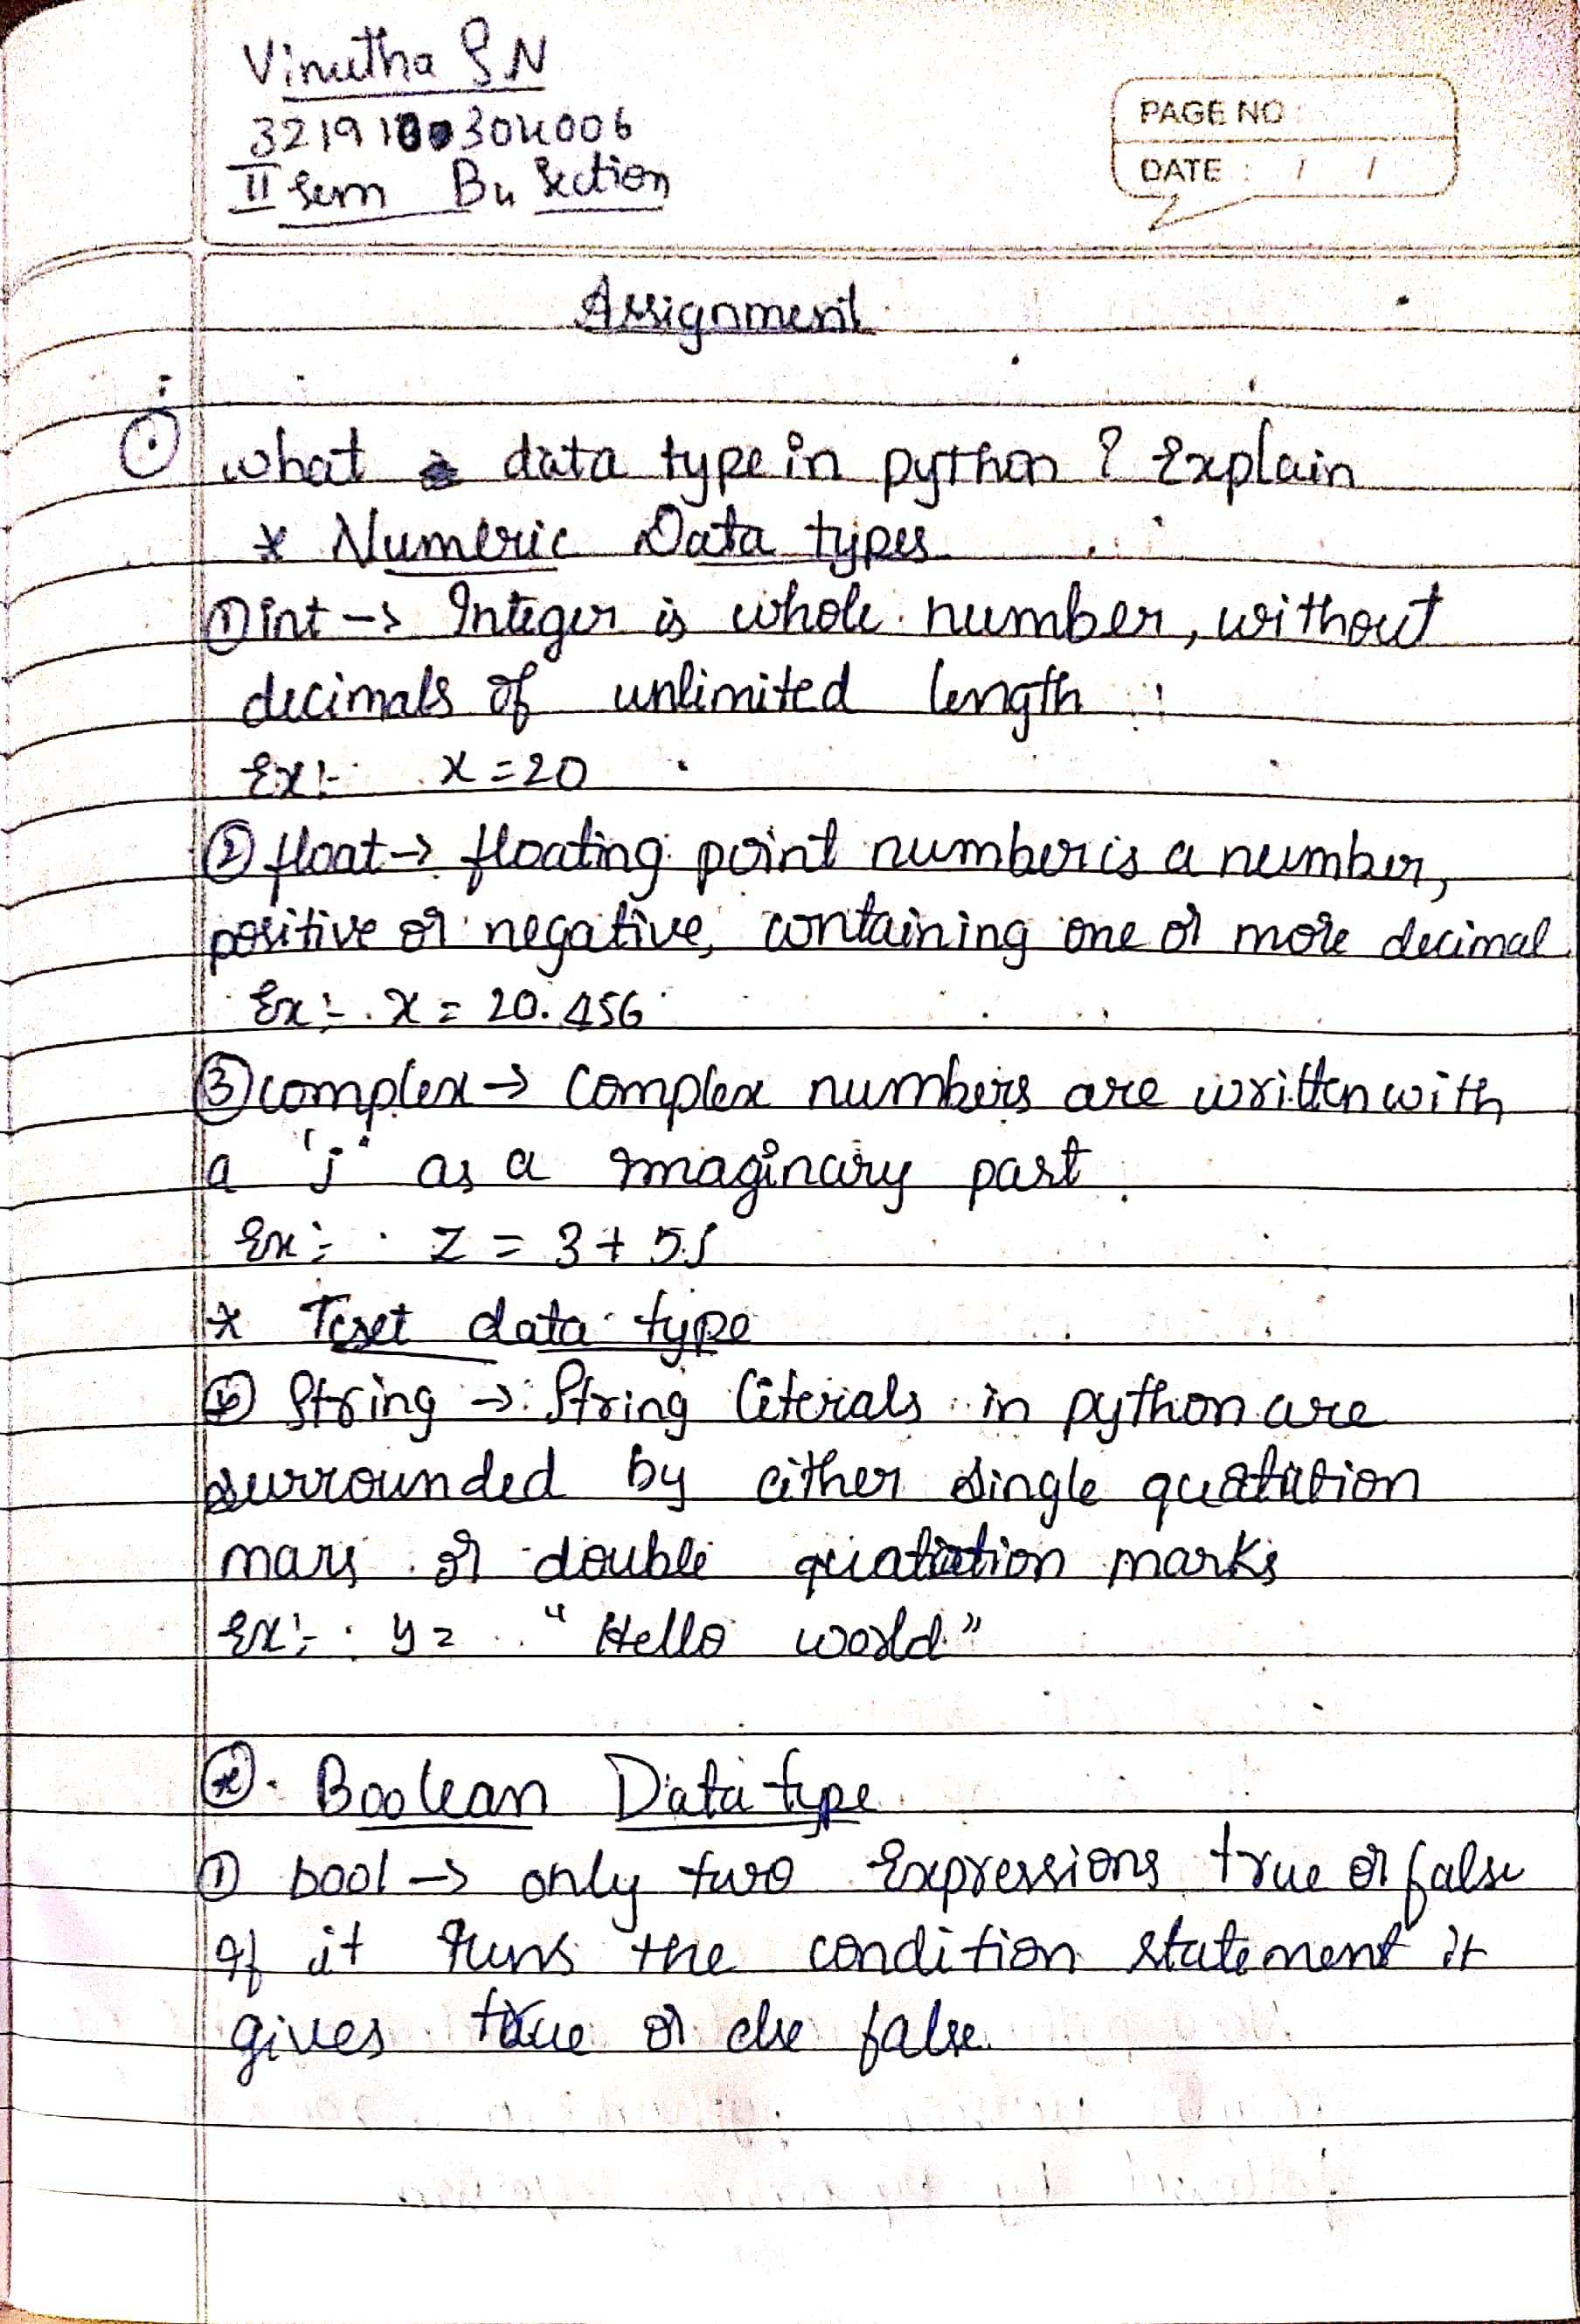 Vinutha S N
II Sem B4 Section
PAGE NO :
DATE : / /
Assignment
① what data type in python ? Explain
* Numeric Data types
① int -> Integer is whole number, without
decimals of unlimited length
Ex:- x = 20
② float -> floating point number is a number,
positive or negative, containing one or more decimal
Ex:- x = 20.456
③ complex -> Complex numbers are written with
a 'j' as a imaginary part
Ex:- Z = 3 + 5j
* Text data type
String -> String literals in python are
surrounded by either single quatation
mars or double quatation marks
Ex:- y = "Hello world"
* Boolean Data type
① bool -> only two Expressions true or false
If it runs the condition statement it
gives true or else false.